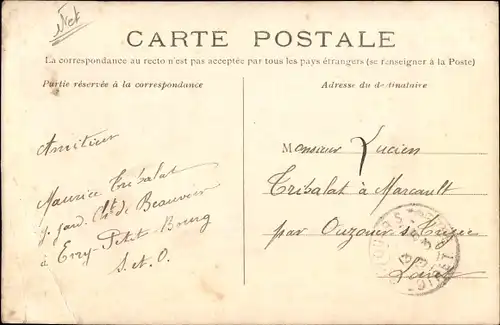 CARTE POSTALE
La correspondance au recto n'est pas acceptée par tous les pays étrangers (se renseigner à la Poste)
Partie réservée à la correspondance
Adresse du destinataire
Amitiés
Maurice Tribalat
g. jard. Ch. de Beauvoir
à Evry-Petit-Bourg
S. et O.
Monsieur Lucien
Tribalat à Marcault
par Ouzouer s. Trézée
Loiret